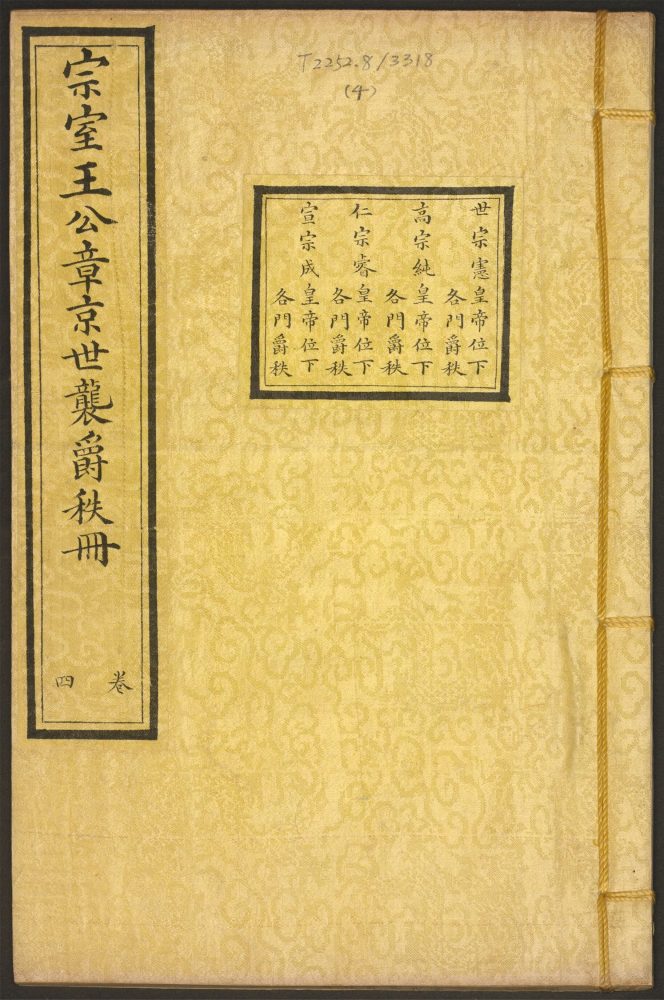 T2252.8/3318
(4)
宗室王公章京世襲爵秩冊
卷四
世宗憲皇帝位下
各門爵秩
高宗純皇帝位下
各門爵秩
仁宗睿皇帝位下
各門爵秩
宣宗成皇帝位下
各門爵秩